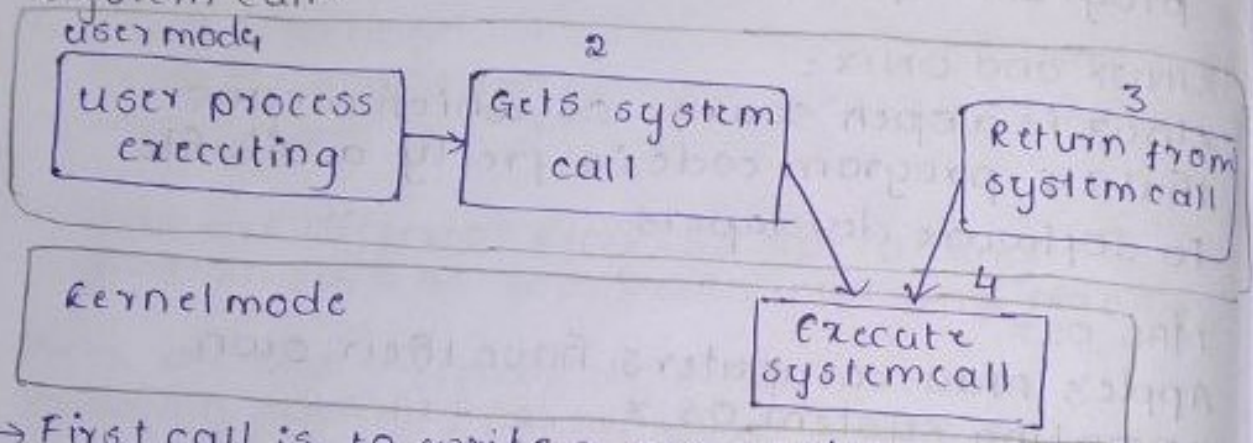 user mode
2
user process
executing
Gets system
call
3
Return from
system call
kernel mode
4
Execute
system call
→ First call is to write